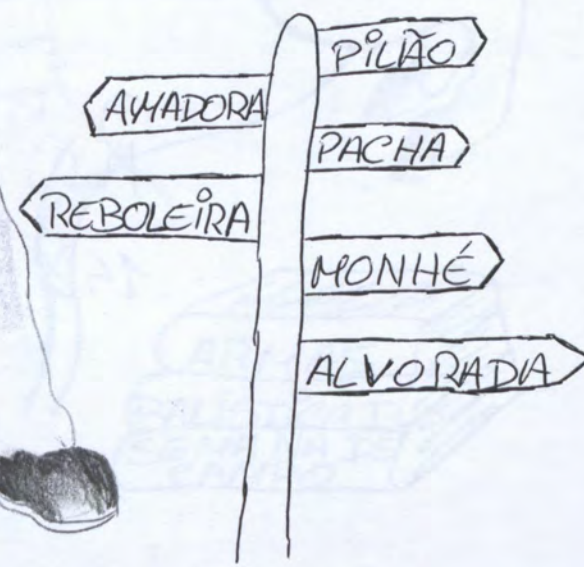 PILÃO
AMADORA
PACHA
REBOLEIRA
MONHÉ
ALVORADA